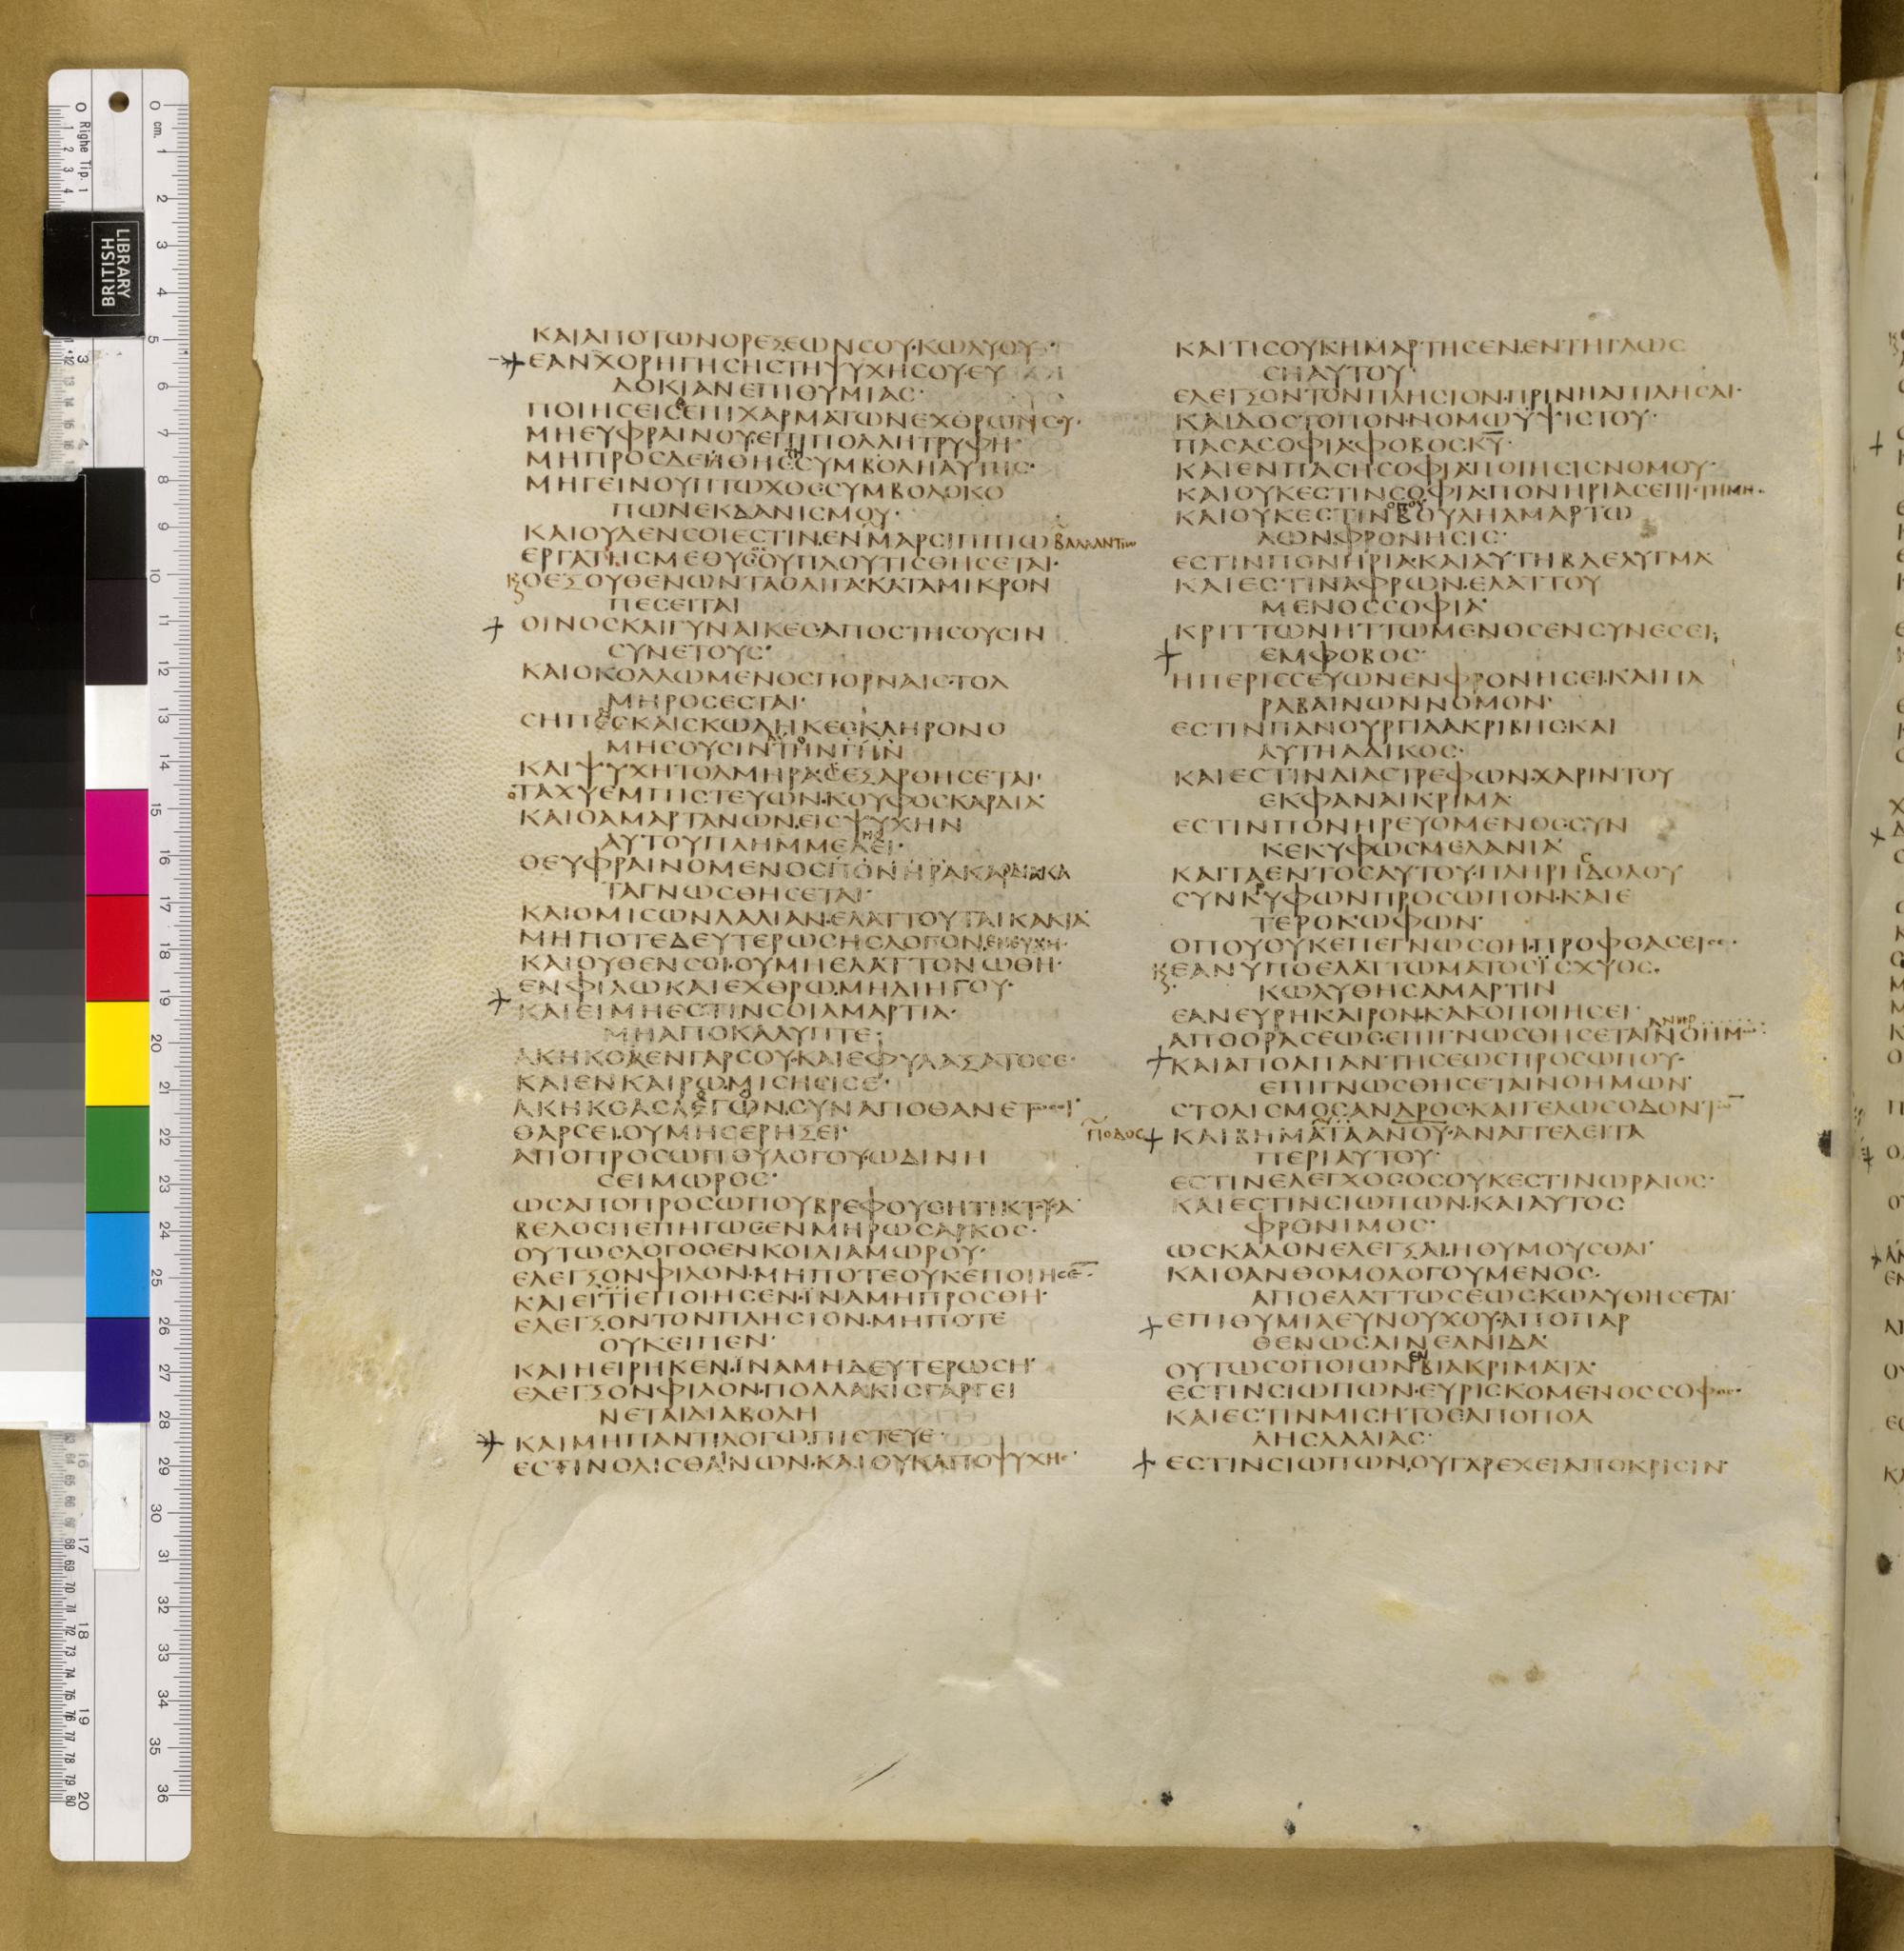 ΚΑΙΑΠΟΤΩΝΟΡΕΞΕΩΝΣΟΥ·ΚΩΛΥΟΥ·
ΕΑΝΧΟΡΗΓΗCΗCΤΗΨΥΧΗCΟΥΕΥ
ΔΟΚΙΑΝΕΠΙΘΥΜΙΑC·
ΠΟΙΗCΕΙCΕΠΙΧΑΡΜΑΤΩΝΕΧΘΡΩΝCΟΥ·
ΜΗΕΥΦΡΑΙΝΟΥΕΠΙΠΟΛΛΗΤΡΥΦΗ·
ΜΗΠΡΟCΔΕΗΘΗCCΥΜΒΟΛΗΑΥΤΗC·
ΜΗΓΕΙΝΟΥΠΤΩΧΟCCΥΜΒΟΛΟΚΟ
ΠΩΝΕΚΔΑΝΙCΜΟΥ·
ΚΑΙΟΥΔΕΝCΟΙΕCΤΙΝ·ΕΝΜΑΡCΙΠΠΙΩ ΒΑΛΛΑΝΤΙω
ΕΡΓΑΤΗCΜΕΘΥCΟCΟΥΠΛΟΥΤΙCΘΗCΕΤΑΙ·
ΟΕΞΟΥΘΕΝΩΝΤΑΟΛΙΓΑ·ΚΑΤΑΜΙΚΡΟΝ
ΠΕCΕΙΤΑΙ
ΟΙΝΟCΚΑΙΓΥΝΑΙΚΕC·ΑΠΟCΤΗCΟΥCΙΝ
CΥΝΕΤΟΥC·
ΚΑΙΟΚΟΛΛΩΜΕΝΟCΠΟΡΝΑΙC·ΤΟΛ
ΜΗΡΟCΕCΤΑΙ·
CΗΠΕCΚΑΙCΚΩΛΗΚΕCΚΛΗΡΟΝΟ
ΜΗCΟΥCΙΝ
ΚΑΙΨΥΧΗΤΟΛΜΗΡΑ·ΕΞΑΡΘΗCΕΤΑΙ·
ΟΤΑΧΥΕΜΠΙCΤΕΥΩΝ·ΚΟΥΦΟCΚΑΡΔΙΑ·
ΚΑΙΟΑΜΑΡΤΑΝΩΝ·ΕΙCΨΥΧΗΝ
ΑΥΤΟΥΠΛΗΜΜΕΛΕΙ·
ΟΕΥΦΡΑΙΝΟΜΕΝΟCΠΟΝΗΡΑΚΑΡΔΙΑΚΑ
ΤΑΓΝΩCΘΗCΕΤΑΙ·
ΚΑΙΟΜΙCΩΝΛΑΛΙΑΝ·ΕΛΑΤΤΟΥΤΑΙΚΑΚΙΑ·
ΜΗΠΟΤΕΔΕΥΤΕΡΩCΗCΛΟΓΟΝ·ΕΝΕΥΧΗ·
ΚΑΙΟΥΘΕΝCΟΙ·ΟΥΜΗΕΛΑΤΤΟΝΩΘΗ·
ΕΝΦΙΛΩΚΑΙΕΧΘΡΩ·ΜΗΔΙΗΓΟΥ·
ΚΑΙΕΙΜΗΕCΤΙΝCΟΙΑΜΑΡΤΙΑ·
ΜΗΑΠΟΚΑΛΥΠΤΕ·
ΑΚΗΚΟΑΕΝΓΑΡCΟΥ·ΚΑΙΕΦΥΛΑΞΑΤΟCΕ·
ΚΑΙΕΝΚΑΙΡΩ·ΜΙCΗCΕΙCΕ·
ΑΚΗΚΟΑCΛΟΓΟΝ·CΥΝΑΠΟΘΑΝΕΤ
ΘΑΡCΕΙ·ΟΥΜΗCΕΡΗΞΕΙ·
ΑΠΟΠΡΟCΩΠΟΥΛΟΓΟΥ·ΩΔΙΝΗ
CΕΙΜΩΡΟC·
ΩCΑΠΟΠΡΟCΩΠΟΥΒΡΕΦΟΥCΗΤΙΚΤΟΥCΑ·
ΒΕΛΟCΠΕΠΗΓΩCΕΝΜΗΡΩCΑΡΚΟC·
ΟΥΤΩCΛΟΓΟCΕΝΚΟΙΛΙΑΜΩΡΟΥ·
ΕΛΕΓΞΟΝΦΙΛΟΝ·ΜΗΠΟΤΕΟΥΚΕΠΟΙΗCΕ·
ΚΑΙΕΙΤΙΕΠΟΙΗCΕΝ·ΙΝΑΜΗΠΡΟCΘΗ·
ΕΛΕΓΞΟΝΤΟΝΠΛΗCΙΟΝ·ΜΗΠΟΤΕ
ΟΥΚΕΙΠΕΝ·
ΚΑΙΗΕΙΡΗΚΕΝ·ΙΝΑΜΗΔΕΥΤΕΡΩCΗ·
ΕΛΕΓΞΟΝΦΙΛΟΝ·ΠΟΛΛΑΚΙCΓΑΡΓΕΙ
ΝΕΤΑΙΔΙΑΒΟΛΗ
ΚΑΙΜΗΠΑΝΤΙΛΟΓΩ·ΠΙCΤΕΥΕ·
ΕCΤΙΝΟΛΙCΘΑΙΝΩΝ·ΚΑΙΟΥΚΑΠΟΨΥΧΗ·
ΚΑΙΤΙCΟΥΚΗΜΑΡΤΗCΕΝ·ΕΝΤΗΓΛΩC
CΗΑΥΤΟΥ·
ΕΛΕΓΞΟΝΤΟΝΠΛΗCΙΟΝ·ΠΡΙΝΗΑΠΙΛΗCΑΙ·
ΚΑΙΔΟCΤΟΠΟΝ·ΝΟΜΩΥΨΙCΤΟΥ·
ΠΑCΑCΟΦΙΑ·ΦΟΒΟCΚΥ·
ΚΑΙΕΝΠΑCΗCΟΦΙΑ·ΠΟΙΗCΙCΝΟΜΟΥ·
ΚΑΙΟΥΚΕCΤΙΝCΟΦΙΑ·ΠΟΝΗΡΙΑCΕΠΙCΤΗΜΗ·
ΚΑΙΟΥΚΕCΤΙΝΒΟΥΛΗΑΜΑΡΤΩ
ΛΩΝ·ΦΡΟΝΗCΙC·
ΕCΤΙΝΠΟΝΗΡΙΑ·ΚΑΙΑΥΤΗΒΔΕΛΥΓΜΑ
ΚΑΙΕCΤΙΝΑΦΡΩΝ·ΕΛΑΤΤΟΥ
ΜΕΝΟCCΟΦΙΑ·
ΚΡΙΤΤΩΝΗΤΤΩΜΕΝΟCΕΝCΥΝΕCΕΙ·
ΕΜΦΟΒΟC·
ΗΠΕΡΙCCΕΥΩΝΕΝΦΡΟΝΗCΕΙ·ΚΑΙΠΑ
ΡΑΒΑΙΝΩΝΝΟΜΟΝ·
ΕCΤΙΝΠΑΝΟΥΡΓΙΑΑΚΡΙΒΗC·ΚΑΙ
ΑΥΤΗΑΔΙΚΟC·
ΚΑΙΕCΤΙΝΔΙΑCΤΡΕΦΩΝ·ΧΑΡΙΝΤΟΥ
ΕΚΦΑΝΑΙΚΡΙΜΑ·
ΕCΤΙΝΠΟΝΗΡΕΥΟΜΕΝΟCCΥΝ
ΚΕΚΥΦΩCΜΕΛΑΝΙΑ·
ΚΑΙΤΑΕΝΤΟCΑΥΤΟΥ·ΠΛΗΡΗCΔΟΛΟΥ
CΥΝΚΥΦΩΝΠΡΟCΩΠΟΝ·ΚΑΙΕ
ΤΕΡΟΚΩΦΩΝ·
ΟΠΟΥΟΥΚΕΠΕΓΝΩCΘΗ·ΠΡΟΦΘΑCΕΙ
ΕΑΝΥΠΟΕΛΑΤΤΩΜΑΤΟCΙCΧΥΟC·
ΚΩΛΥΘΗCΑΜΑΡΤΙΝ
ΕΑΝΕΥΡΗΚΑΙΡΟΝ·ΚΑΚΟΠΟΙΗCΕΙ·
ΑΝΗΡ
ΑΠΟΟΡΑCΕΩCΕΠΙΓΝΩCΘΗCΕΤΑΙΝΟΗΜ
ΚΑΙΑΠΟΑΠΑΝΤΗCΕΩCΠΡΟCΩΠΟΥ·
ΕΠΙΓΝΩCΘΗCΕΤΑΙΝΟΗΜΩΝ·
CΤΟΛΙCΜΟCΑΝΔΡΟC·ΚΑΙΓΕΛΩCΟΔΟΝΤ
ΠΟΔΟC ΚΑΙΒΗΜΑΤΑΑΝΟΥ·ΑΝΑΓΓΕΛΕΙΤΑ
ΠΕΡΙΑΥΤΟΥ·
ΕCΤΙΝΕΛΕΓΧΟCΟCΟΥΚΕCΤΙΝΩΡΑΙΟC·
ΚΑΙΕCΤΙΝCΙΩΠΩΝ·ΚΑΙΑΥΤΟC
ΦΡΟΝΙΜΟC·
ΩCΚΑΛΟΝΕΛΕΓΞΑΙ·ΗΘΥΜΟΥCΘΑΙ·
ΚΑΙΟΑΝΘΟΜΟΛΟΓΟΥΜΕΝΟC·
ΑΠΟΕΛΑΤΤΩCΕΩCΚΩΛΥΘΗCΕΤΑΙ·
ΕΠΙΘΥΜΙΑΕΥΝΟΥΧΟΥ·ΑΠΟΠΑΡ
ΘΕΝΩCΑΙΝΕΑΝΙΔΑ·
ΟΥΤΩCΟΠΟΙΩΝΕΝΒΙΑΚΡΙΜΑΤΑ·
ΕCΤΙΝCΙΩΠΩΝ·ΕΥΡΙCΚΟΜΕΝΟCCΟΦ
ΚΑΙΕCΤΙΝΜΙCΗΤΟCΑΠΟΠΟΛ
ΛΗCΛΑΛΙΑC·
ΕCΤΙΝCΙΩΠΩΝ·ΟΥΓΑΡΕΧΕΙΑΠΟΚΡΙCΙΝ·
LIBRARY
BRITISH
Righe Tip. 1
cm.